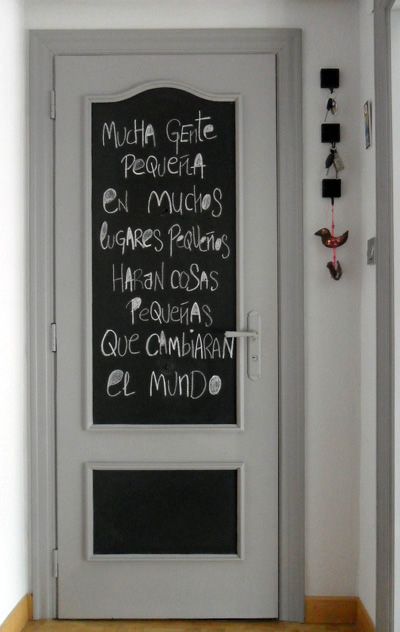 MUCHA GENtE
PEQUEÑA
EN MUCHOS
lUGARES PEQUEÑOS
HARAN COSAS
PEQUEÑAS
QUE CAMBiARAN
El MUNDO